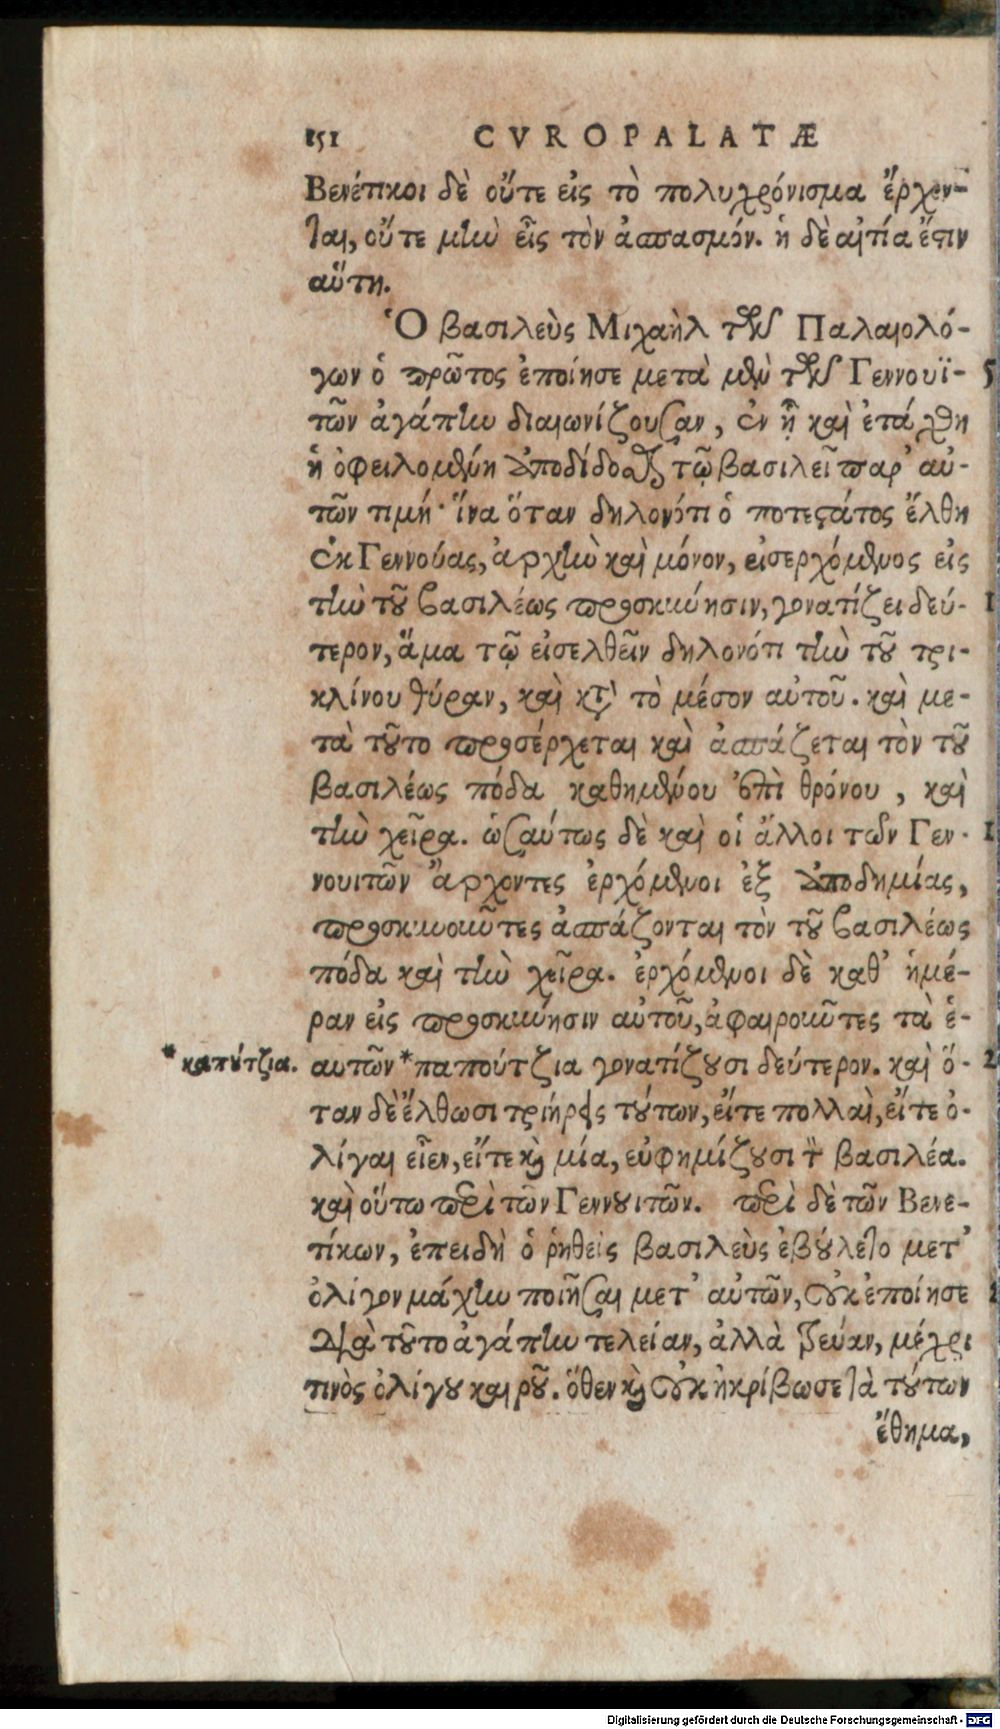 151 CVROPALATÆ
Βενέτικοι δὲ οὔτε εἰς τὸ πολυχρόνισμα ἔρχον-
ται, οὔτε μὴν εἰς τὸν ἀσπασμόν. ἡ δὲ αἰτία ἔστιν
αὕτη.
Ὁ βασιλεὺς Μιχαὴλ τῶν Παλαιολό-
γων ὁ πρῶτος ἐποίησε μετὰ μὲν τῶν Γεννουϊ- 5
τῶν ἀγάπην διαιωνίζουσαν, ἐν ᾗ καὶ ἐτάχθη
ἡ ὀφειλομένη ἀποδίδοσθαι τῷ βασιλεῖ παρ' αὐ-
τῶν τιμή· ἵνα ὅταν δηλονότι ὁ ποτεστάτος ἔλθη
ἐκ Γεννούας, ἀρχὴν καὶ μόνον, εἰσερχόμενος εἰς
τὴν τοῦ βασιλέως προσκύνησιν, γονατίζει δεύ- 1
τερον, ἅμα τῷ εἰσελθεῖν δηλονότι τὴν τοῦ τρι-
κλίνου θύραν, καὶ κατὰ τὸ μέσον αὐτοῦ. καὶ με-
τὰ τοῦτο προσέρχεται καὶ ἀσπάζεται τὸν τοῦ
βασιλέως πόδα καθημένου ἐπὶ θρόνου, καὶ
τὴν χεῖρα. ὡσαύτως δὲ καὶ οἱ ἄλλοι τῶν Γεν- 1
νουιτῶν ἄρχοντες ἐρχόμενοι ἐξ ἀποδημίας,
προσκυνοῦντες ἀσπάζονται τὸν τοῦ βασιλέως
πόδα καὶ τὴν χεῖρα. ἐρχόμενοι δὲ καθ' ἡμέ-
ραν εἰς προσκύνησιν αὐτοῦ, ἀφαιροῦντες τὰ ἑ-
* καπούτζια. αυτῶν * παπούτζια γονατίζουσι δεύτερον. καὶ ὅ- 2
ταν δὲ ἔλθωσι τριήρεις τούτων, εἴτε πολλαὶ, εἴτε ὀ-
λίγαι εἶεν, εἴτε καὶ μία, εὐφημίζουσι τὸν βασιλέα.
καὶ οὕτω περὶ τῶν Γεννουιτῶν. περὶ δὲ τῶν Βενε-
τίκων, ἐπειδὴ ὁ ῥηθεὶς βασιλεὺς ἐβούλετο μετ'
ὀλίγον μάχην ποιῆσαι μετ' αὐτῶν, οὐκ ἐποίησε
διὰ τοῦτο ἀγάπην τελείαν, ἀλλὰ τρεύαν, μέχρι
τινὸς ὀλίγου καιροῦ. ὅθεν καὶ οὐκ ἠκρίβωσε τὰ τούτων
ἔθημα,
Digitalisierung gefördert durch die Deutsche Forschungsgemeinschaft - DFG